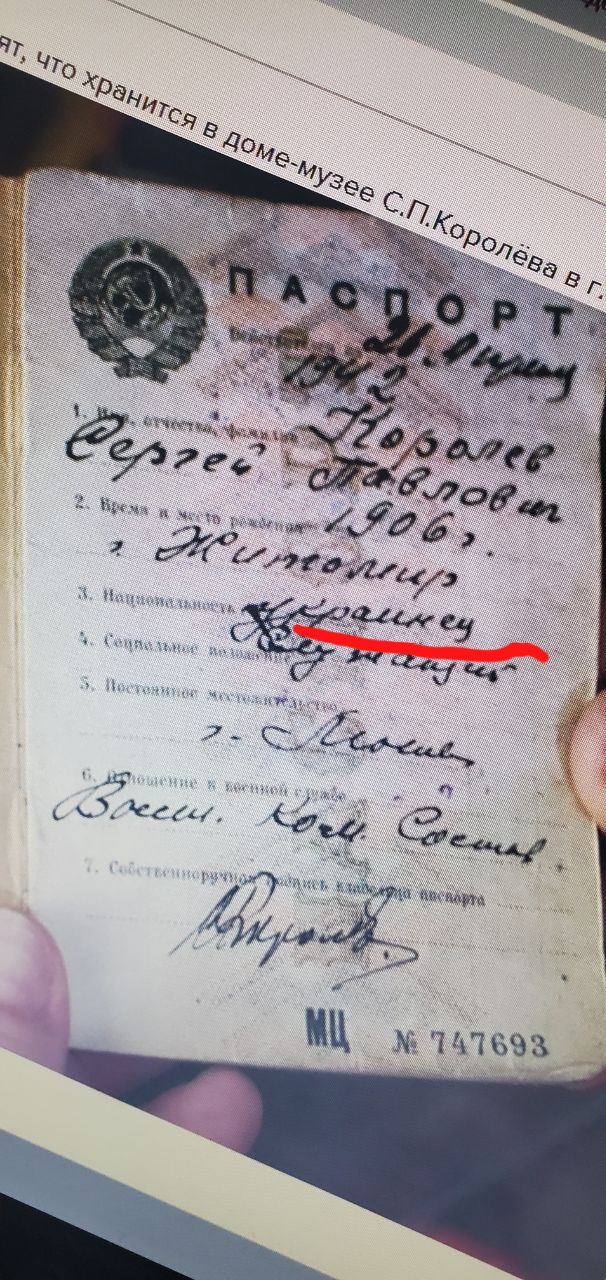 ят, что хранится в доме-музее С.П.Королёва в г.
ПАСПОРТ
1942
1. Имя, отчество, фамилия Королев
Сергей Павлович
2. Время и место рождения 1906 г.
г. Житомир
3. Национальность украинец
4. Социальное положение Служащий
5. Постоянное местожительство
г. Москва
6. Отношение к военной службе
Воен. Ком. Состав
7. Собственноручная подпись владельца паспорта
МЦ № 747693